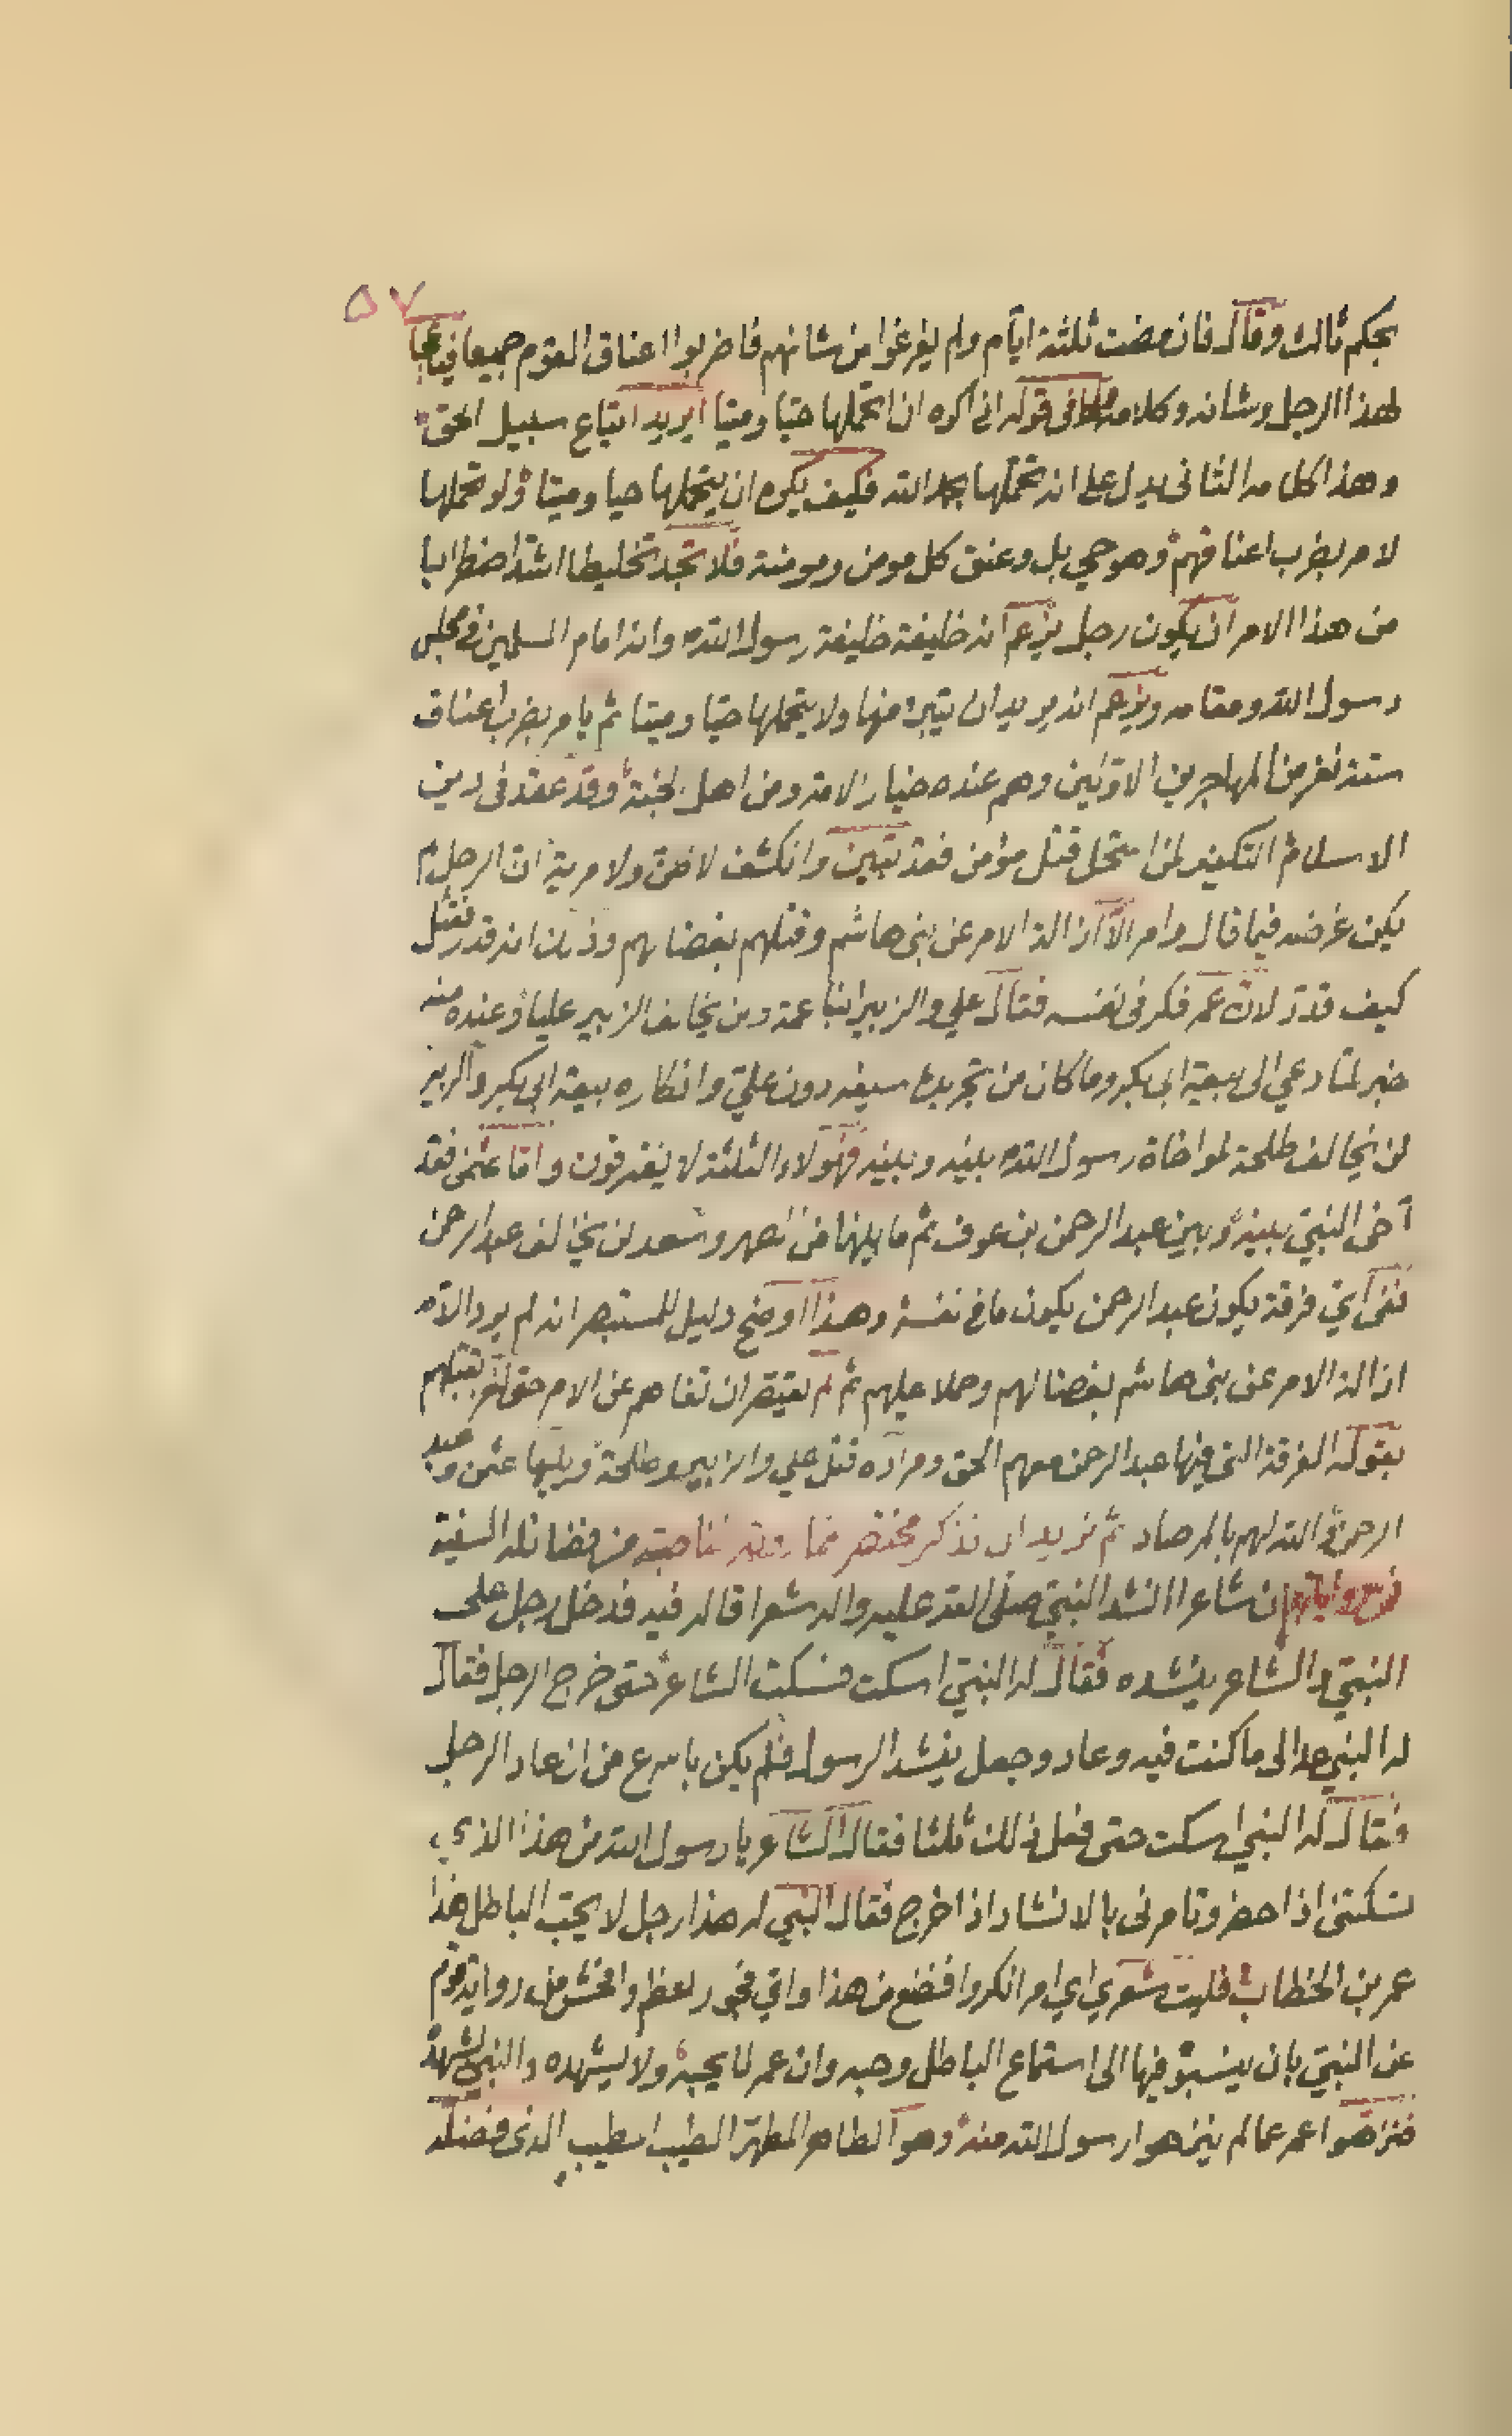 ٥٧
بحكم ثالث وقال فان مضت ثلثة ايام ولم يفرغوا من شانهم فاضربوا اعناق القوم جميعا فيا عجبا
لهذا الرجل وشانه وكلامه في قوله انى اكره ان اتحملها حيّا وميتا ايريد اتباع سبيل الحق
وهذا كلامه الثانى يدل على انه تحملها فكيف يكره ان يتحملها حيا وميتا ولو تحملها
لامر بضرب اعناقهم وهو حي بل وعنق كل مومن ومومنة فلا تجد تخليطا اشد اضطرابا
من هذا الامر ان يكون رجل يزعم انه خليفة خليفة رسول الله وانه امام المسلمين في مجلس
رسول الله ومقامه ويزعم انه يريد ان يتبرء منها ولا يتحملها حيّا وميتا ثم يامر بضرب اعناق
ستة نفر من المهاجرين الاوّلين وهم عنده خيار الامة ومن اهل الجنة وقد عقد فى دين
الاسلام التكفير لمن استحل قتل مؤمن فقد تبيّن وانكشف لاخفى ولا مرية ان الرجل لم
يكن غرضه فيما قال وامر الّا ازالة الامر عن بنى هاشم وقتلهم بغضا لهم وذلك انه قدر فقتل
كيف قدّر لان عمر فكر فى نفسه فقال علي والزبير ابنا عمة ولن يخالف الزبير عليا وعنده منه
خبر لمّا دعي الى بيعة ابى بكر وما كان من تجريده سيفه دون عليّ وانكاره بيعة ابى بكر والزبير
لن يخالف طلحة لمواخاة رسول الله بينه وبينه فهولاء الثلثة لا يفترقون وامّا عثمن فقد
آخى النبيّ بينه وبين عبد الرحمن بن عوف ثم ما بينهما من الصهر وسعد لن يخالف عبد الرحمن
ففى ايّ فرقة يكون عبد الرحمن يكون ما في نفسه وهذا اوضح دليل للمستبصر انه لم يرد الّا
ازالة الامر عن بنى هاشم بغضا لهم وحملا عليهم ثم لم يقتصر ان نفاهم عن الامر حتى امر بقتلهم
بقوله الفرقة التى فيها عبد الرحمن معهم الحق ومراده قتل علي والزبير وطلحة ويليها عثمن وعبد
الرحمن والله لهم بالمرصاد ثم نريد ان نذكر مختصر مما من فضائله السنية
ان شاعرا انشد النبيّ صلى الله عليه واله شعرا قاله فيه فدخل رجل على
النبيّ والشاعر ينشده فقال له النبيّ اسكت فسكت الشاعر حتى خرج الرجل فقال
له النبي عد الى ما كنت فيه وعاد وجعل ينشد الرسول فلم يكن باسرع من ان عاد الرجل
فقال له النبي اسكت حتى فعل ذلك ثلثا فقال الشاعر يا رسول الله من هذا الذي
تسكتنى اذا حضر وتامرنى بالانشاد اذا خرج فقال النبي له هذا رجل لا يحبّ الباطل هذا
عمر بن الخطاب فليت شعري اي امر انكروا فضع من هذا واي فجور اعظم وافحش من رواية قوم
عن النبيّ بان ينسبوه فيها الى استماع الباطل وحبه وان عمر لا يحبه ولا يشهده والنبي يشهده
فنزّهوا عمر عما لم ينزهوا رسول الله منه وهو الطاهر المطهّر الطيب المطيب الذى فضله